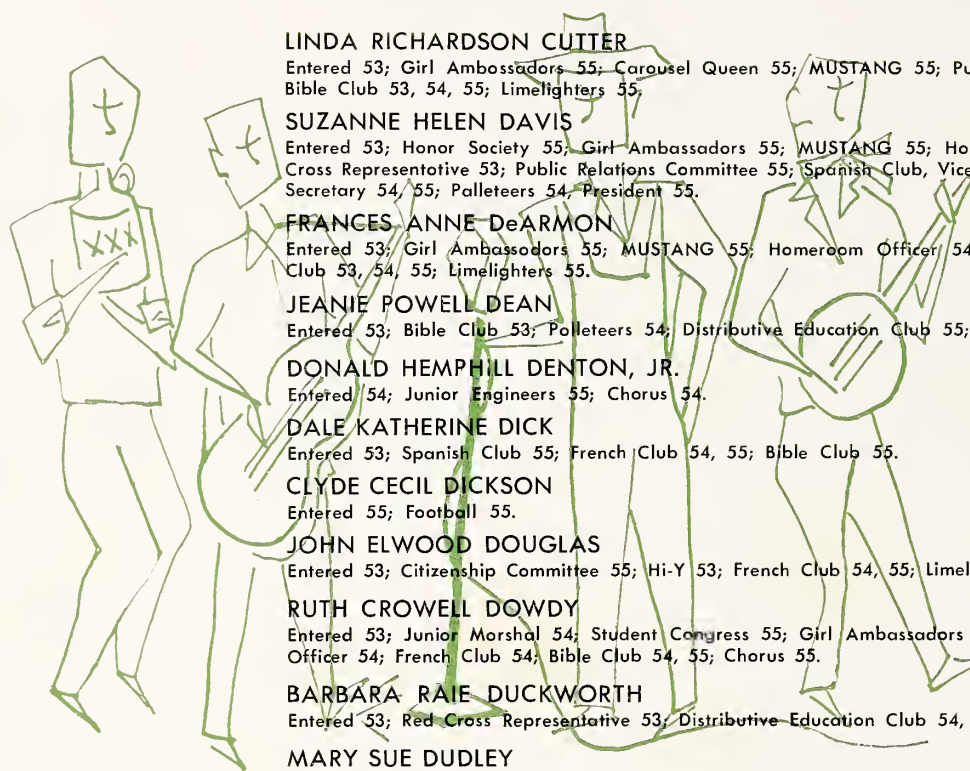 LINDA RICHARDSON CUTTER
Entered 53; Girl Ambossadors 55; Carousel Queen 55; MUSTANG 55; Pu
Bible Club 53, 54, 55; Limelighters 55.
SUZANNE HELEN DAVIS
Entered 53; Honor Society 55; Girl Ambassadors 55; MUSTANG 55; Ho
Cross Representotive 53; Public Relations Committee 55; Spanish Club, Vice
Secretary 54, 55; Palleteers 54, President 55.
XXX
FRANCES ANNE DeARMON
Entered 53; Girl Ambassodors 55; MUSTANG 55; Homeroom Officer 54
Club 53, 54, 55; Limelighters 55.
JEANIE POWELL DEAN
Entered 53; Bible Club 53; Polleteers 54; Distributive Education Club 55;
DONALD HEMPHILL DENTON, JR.
Entered 54; Junior Engineers 55; Chorus 54.
DALE KATHERINE DICK
Entered 53; Spanish Club 55; French Club 54, 55; Bible Club 55.
CLYDE CECIL DICKSON
Entered 55; Football 55.
JOHN ELWOOD DOUGLAS
Entered 53; Citizenship Committee 55; Hi-Y 53; French Club 54, 55; Limel
RUTH CROWELL DOWDY
Entered 53; Junior Morshal 54; Student Congress 55; Girl Ambassadors
Officer 54; French Club 54; Bible Club 54, 55; Chorus 55.
BARBARA RAIE DUCKWORTH
Entered 53; Red Cross Representative 53; Distributive Education Club 54,
MARY SUE DUDLEY